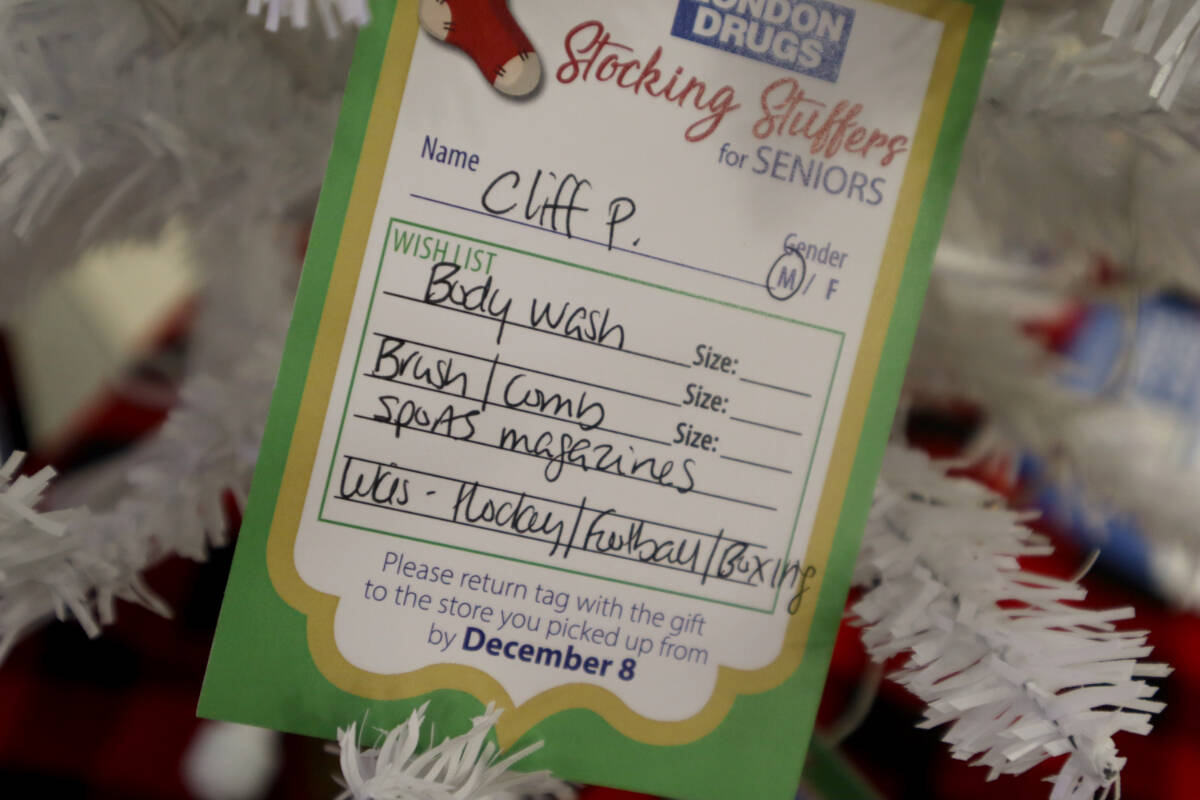 LONDON
DRUGS
Stocking Stuffers
for SENIORS
Name Cliff P.
Gender
M / F
WISH LIST
Body wash Size:
Brush/Comb Size:
Size:
sports magazines
Hockey/Football/Boxing
Please return tag with the gift
to the store you picked up from
by December 8